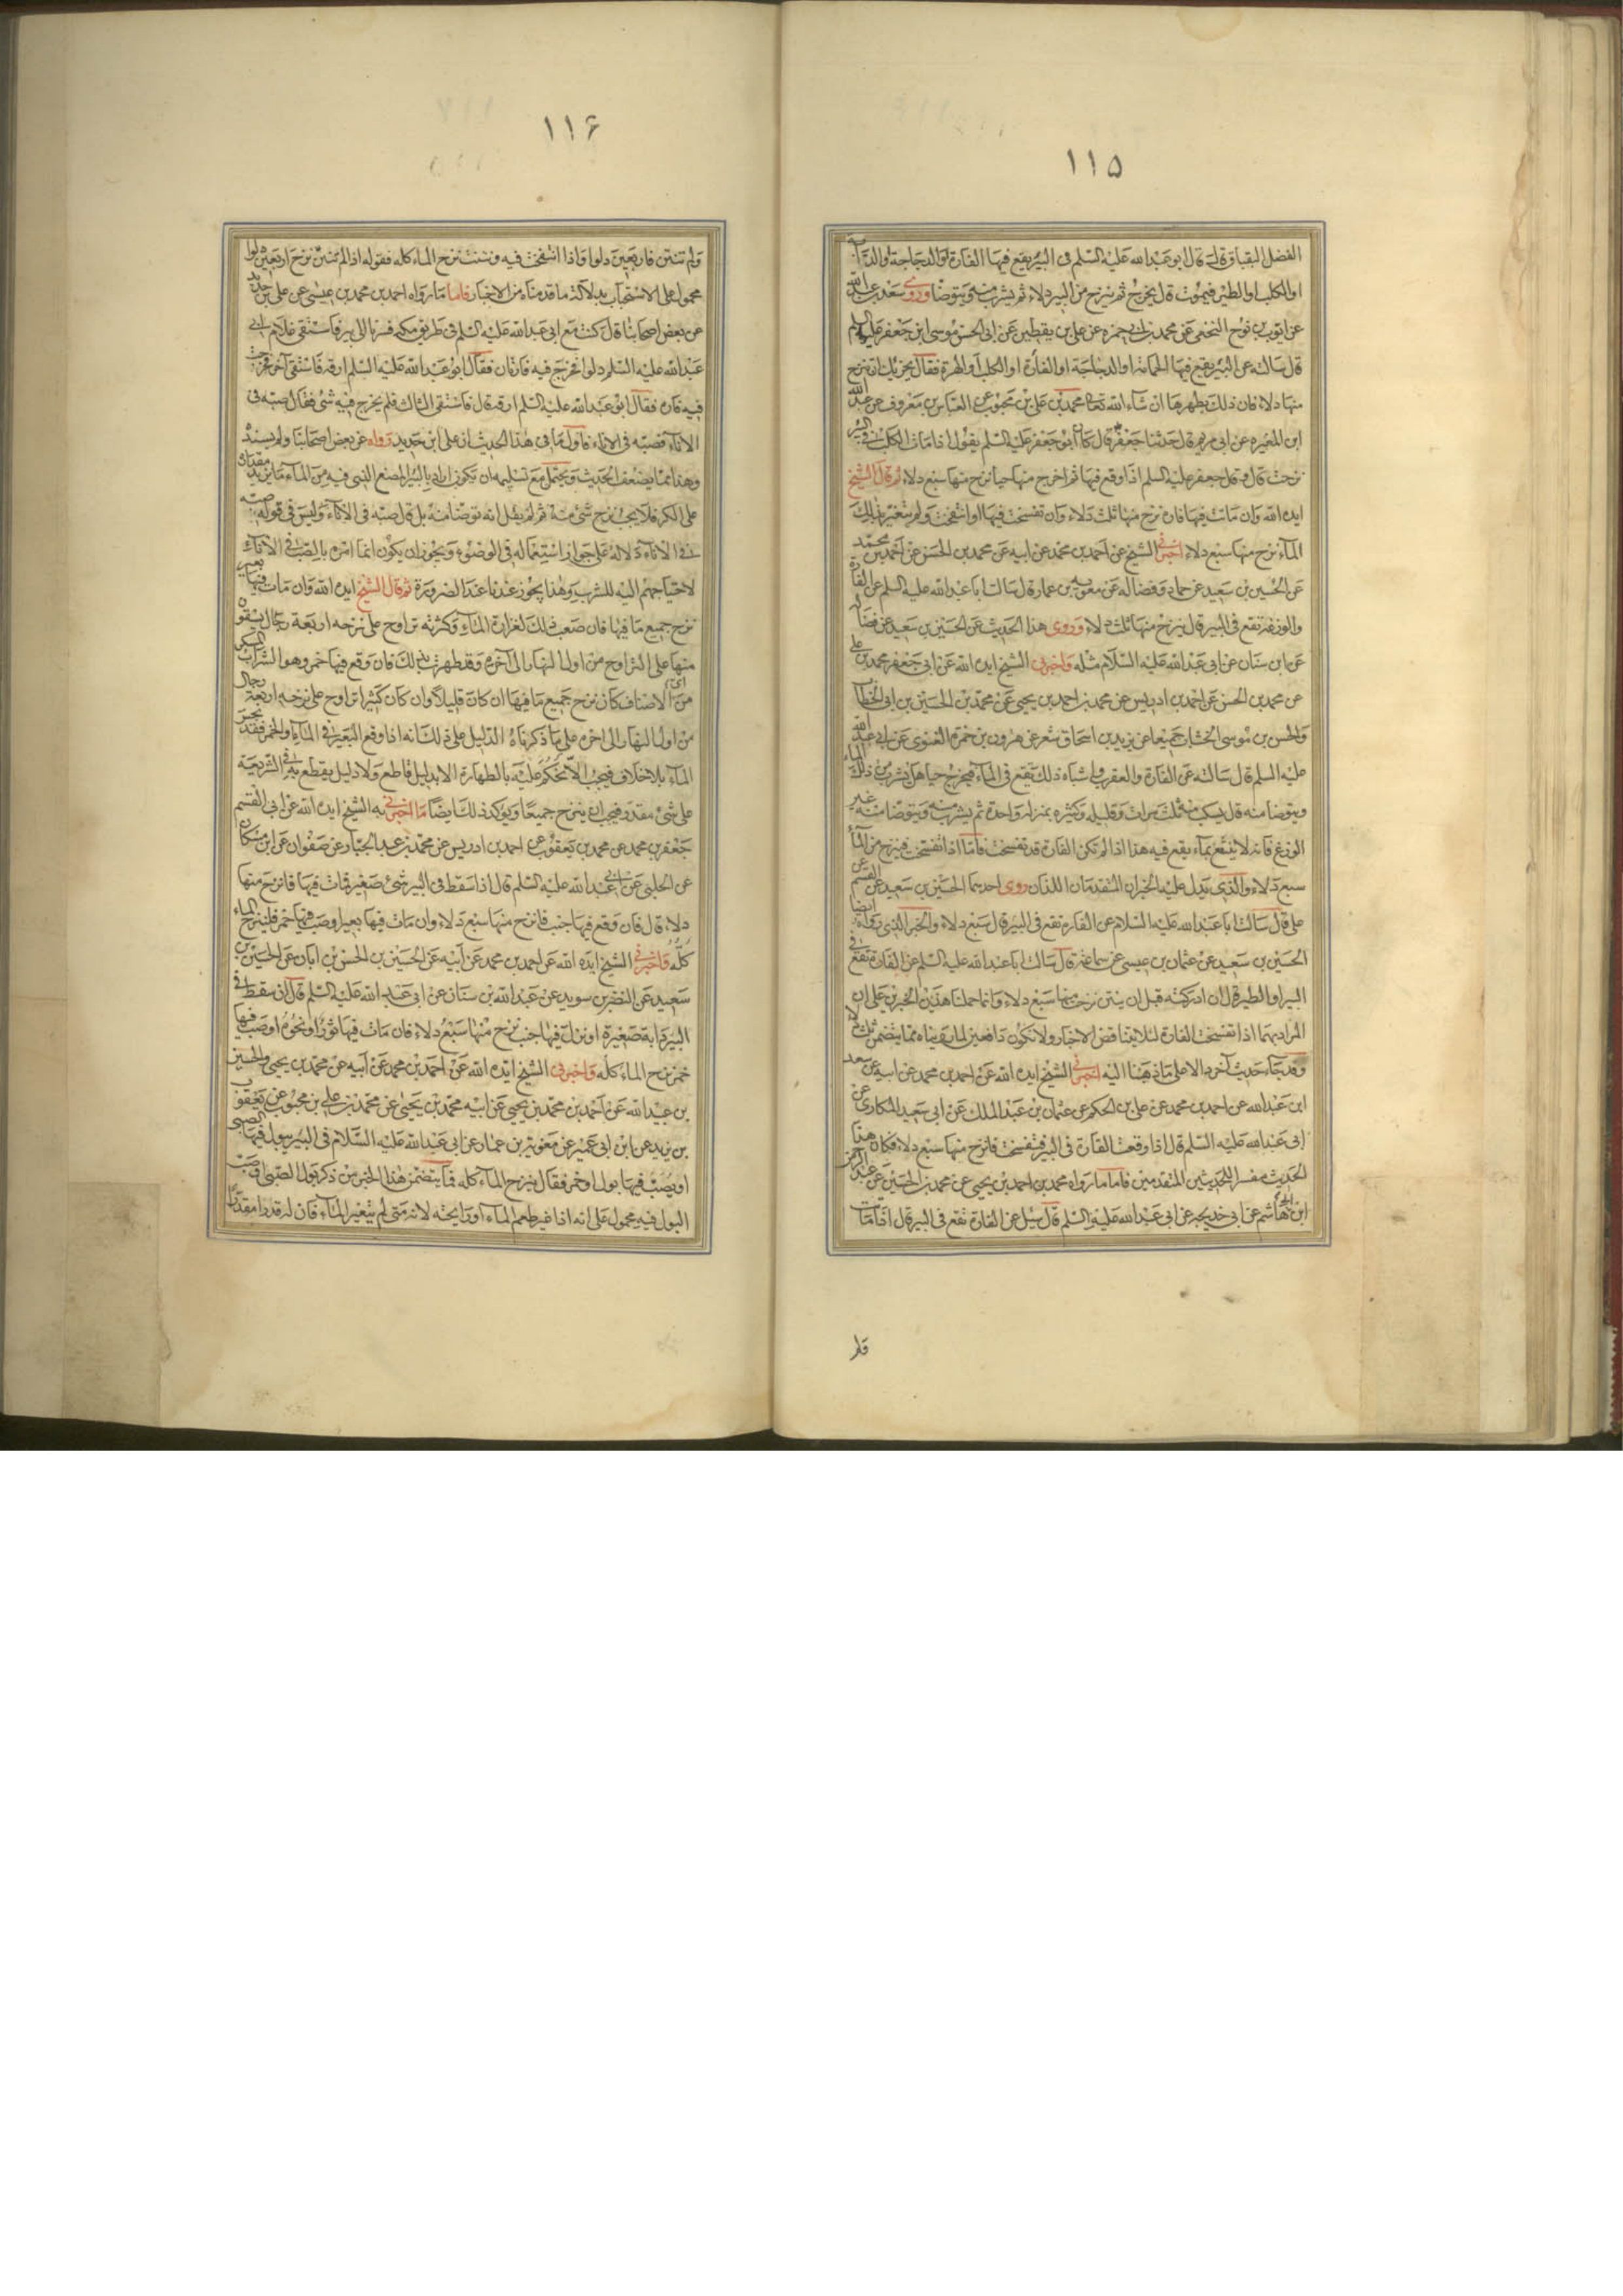 ١١٥
الفضل البقباق قال قال ابو عبد الله عليه السلم فى البير يقع فيها الفارة او الدجاجة او الدابة
او الكلب او الطير فيموت قال يخرج ثم ينزح من البير دلاء ثم يشرب منه ويتوضأ وروى سعد بن عبد الله
عن ايوب بن نوح النخعى عن محمد بن ابى حمزه عن على بن يقطين عن ابى الحسن موسى ابن جعفر عليه السلام
قال سالته عن البير يقع فيها الحمامة او الدجاجة او الفأرة او الكلب او الهرة فقال يجزيك ان تنزح
منها دلاء فان ذلك يطهرها ان شاء الله تعالى محمد بن على بن محبوب عن العباس بن معروف عن عبد الله
ابن المغيره عن ابى مريم قال حدثنا جعفر قال كان ابو جعفر عليه السلم يقول اذا مات الكلب فى البير
نزحت قال وقال جعفر عليه السلم اذا وقع فيها ثم اخرج منها حيا نزح منها سبع دلاء ثم قال الشيخ
ايده الله وان مات فيها فان نزح منها ثلث دلاء وان تفسخت فيها او انتفخت ولم يتغير بذلك
الماء نزح منها سبع دلاء اخبرنى الشيخ عن احمد بن محمد عن ابيه عن محمد بن الحسن عن احمد بن محمد
عن الحسين بن سعيد عن حماد وفضاله عن معويه بن عمار قال سالت ابا عبد الله عليه السلم عن الفارة
والوزغة تقع فى البير قال ينزح منها ثلث دلاء وروى هذا الحديث عن الحسين بن سعيد عن فضالة
عن ابن سنان عن ابى عبد الله عليه السلام مثله واخبرنى الشيخ ايده الله عن ابى جعفر محمد بن على
عن محمد بن الحسن عن احمد بن ادريس عن محمد بن احمد بن يحيى عن محمد بن الحسين بن ابى الخطاب
والحسن بن موسى الخشاب جميعا عن يزيد بن اسحاق شعر عن هرون بن حمزه الغنوى عن ابى عبد الله
عليه السلم قال سالته عن الفارة والعقرب واشباه ذلك تقع فى الماء فيخرج حيا هل يشرب من ذلك الماء
ويتوضأ منه قال يسكب منه ثلث مرات وقليله وكثيره بمنزلة واحدة ثم يشرب منه ويتوضأ منه غير
الوزغ فانه لا ينتفع بماء يقع فيه هذا اذا لم تكن الفارة قد تفسخت فاما اذا تفسخت فينزح من الماء
سبع دلاء والذى يدل عليه الخبران المتقدمان اللذان روى احدهما الحسين بن سعيد عن القسم عن
على قال سالت ابا عبد الله عليه السلام عن الفارة تقع فى البير قال سبع دلاء والخبر الذى رواه ايضا
الحسين بن سعيد عن عثمان بن عيسى عن سماعة قال سالت ابا عبد الله عليه السلم عن الفارة تقع فى
البير او الطير قال ان ادركته قبل ان ينتن نزحت منها سبع دلاء وانما حملنا هذين الخبرين على ان
المراد بهما اذا تفسخت الفارة لئلا يتناقض الاخبار ولا نكون دافعين لما رويناه مما يتضمن ثلث دلاء
وقد جاء حديث آخر دالا على ما ذهبنا اليه اخبرنى الشيخ ايده الله عن احمد بن محمد عن ابيه عن سعد
ابن عبد الله عن احمد بن محمد عن على بن الحكم عن عثمان بن عبد الملك عن ابى سعيد المكارى عن
ابى عبد الله عليه السلم قال اذا وقعت الفارة فى البير فتفسخت فانزح منها سبع دلاء فكان هذا
الحديث مفسرا للحديثين المتقدمين فاما ما رواه محمد بن احمد بن يحيى عن محمد بن الحسين عن عبد الرحمن
ابن ابى هاشم عن ابى خديجه عن ابى عبد الله عليه السلم قال سئل عن الفارة تقع فى البير قال اذا ماتت
١١۶
ولم تنتن فاربعين دلوا واذا انتفخت فيه ونتنت نزح الماء كله فقوله اذا لم تنتن نزح اربعين دلوا
محمول على الاستحباب بدلالة ما قدمناه من الاخبار فاما ما رواه احمد بن محمد بن عيسى عن على بن حديد
عن بعض اصحابنا قال كنت مع ابى عبد الله عليه السلم فى طريق مكه فصرنا الى بير فاستقى غلام ابى
عبد الله عليه السلم دلوا فخرج فيه فارتان فقال ابو عبد الله عليه السلم ارقه فاستقى آخر فخرجت
فيه فارة فقال ابو عبد الله عليه السلم ارقه قال فاستقى الثالث فلم يخرج فيه شئ فقال صبه فى
الاناء فصبه فى الاناء فاول ما فى هذا الحديث ان على ابن حديد رواه عن بعض اصحابنا ولم يسنده
وهذا مما يضعف الحديث ويحتمل مع تسليمه ان يكون اراد بالبير المصنع الذى فيه من الماء ما يزيد مقداره
على الكر فلا يجب نزح شئ منه ثم لم يقل انه توضأ منه بل قال صبه فى الاناء وليس فى قوله صبه
فى الاناء دلالة على جواز استعماله فى الوضوء ويجوز ان يكون انما امره بالصب فى الاناء
لاحتياجهم اليه للشرب وهذا يجوز عندنا عند الضرورة ثم قال الشيخ ايده الله وان مات فيها بعير
نزح جميع ما فيها فان صعب ذلك لغزارة الماء وكثرته تراوح على نزحه اربعة رجال يستقون
منها على التراوح من اول النهار الى آخره وقد طهرت بذلك فان وقع فيها خمر وهو الشراب المسكر
من اى الاصناف كان نزح جميع ما فيها ان كان قليلا وان كان كثيرا تراوح على نزحه اربعة رجال
من اول النهار الى اخره على ما ذكرناه الدليل على ذلك انه اذا وقع البعير فى الماء او الخمر فقد نجس
الماء بلا خلاف فيجب الا نحكم عليه بالطهارة الا بدليل قاطع ولا دليل يقطع به فى الشريعة
على شئ مقدر فيجب ان ينزح جميعا ويؤكد ذلك ايضا ما اخبرنى به الشيخ ايده الله عن ابى القسم
جعفر بن محمد عن محمد بن يعقوب عن احمد بن ادريس عن محمد بن عبد الجبار عن صفوان عن ابن مسكان
عن الحلبى عن ابى عبد الله عليه السلم قال اذا سقط فى البير شئ صغير فمات فيها فانزح منها
دلاء قال فان وقع فيها جنب فانزح منها سبع دلاء وان مات فيها بعير او صب فيها خمر فلينزح الماء
كله واخبرنى الشيخ ايده الله عن احمد بن محمد عن ابيه عن الحسين بن الحسن بن ابان عن الحسين بن
سعيد عن النضر بن سويد عن عبد الله بن سنان عن ابى عبد الله عليه السلم قال ان سقط فى
البير دابة صغيرة او نزل فيها جنب نزح منها سبع دلاء فان مات فيها ثور او نحوه او صب فيها
خمر نزح الماء كله واخبرنى الشيخ ايده الله عن احمد بن محمد عن ابيه عن محمد بن يحيى والحسين
بن عبيد الله عن احمد بن محمد بن يحيى عن ابيه محمد بن يحيى عن محمد بن على بن محبوب عن يعقوب
بن يزيد عن ابن ابى عمير عن معوية بن عمار عن ابى عبد الله عليه السلام فى البير يبول فيها الصبى
او يصب فيها بول او خمر فقال ينزح الماء كله فما يتضمن هذا الخبر من ذكر بول الصبى او صب
البول فيه محمول على انه اذا غير طعم الماء او رايحته لانه متى لم يتغير الماء فان له قدرا مقدرا
قلم